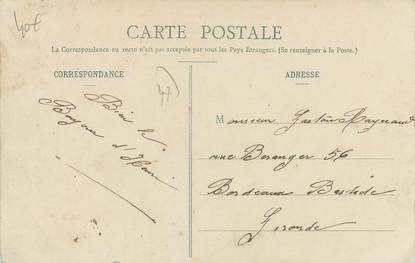 40€
CARTE POSTALE
La Correspondance au recto n'est pas acceptée par tous les Pays Étrangers. (Se renseigner à la Poste.)
CORRESPONDANCE
47
ADRESSE
Bien le
Bonjour d'Henri
Monsieur Gaston Raynaud
rue Beranger 56
Bordeaux Bastide
Gironde